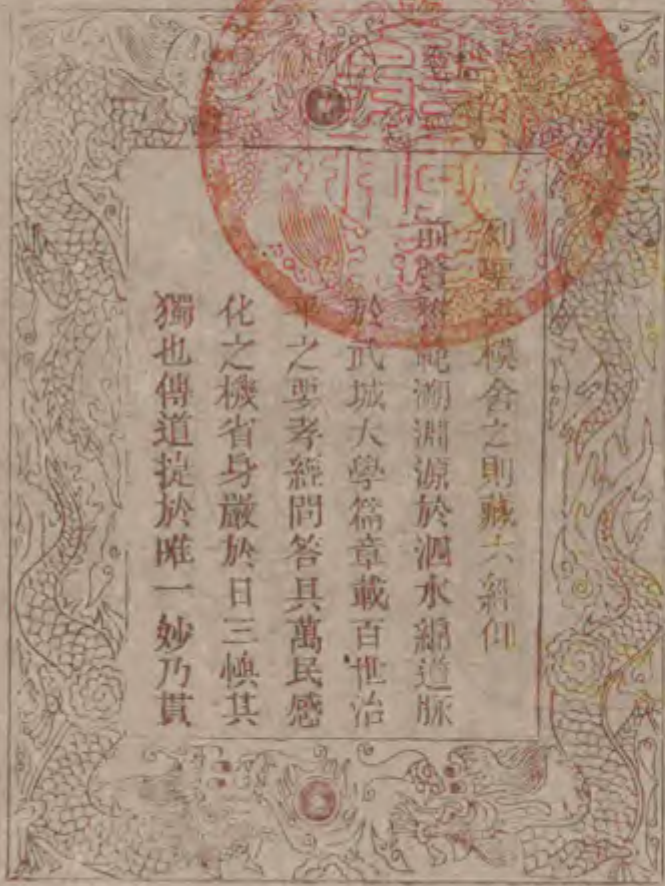 列聖 模舍之則藏六經仰
前 範溯淵源於泗水綿道脉
於武城大學篇章載百世治
平之要孝經問答具萬民感
化之機省身嚴於日三慎其
獨也傳道提於唯一妙乃貫